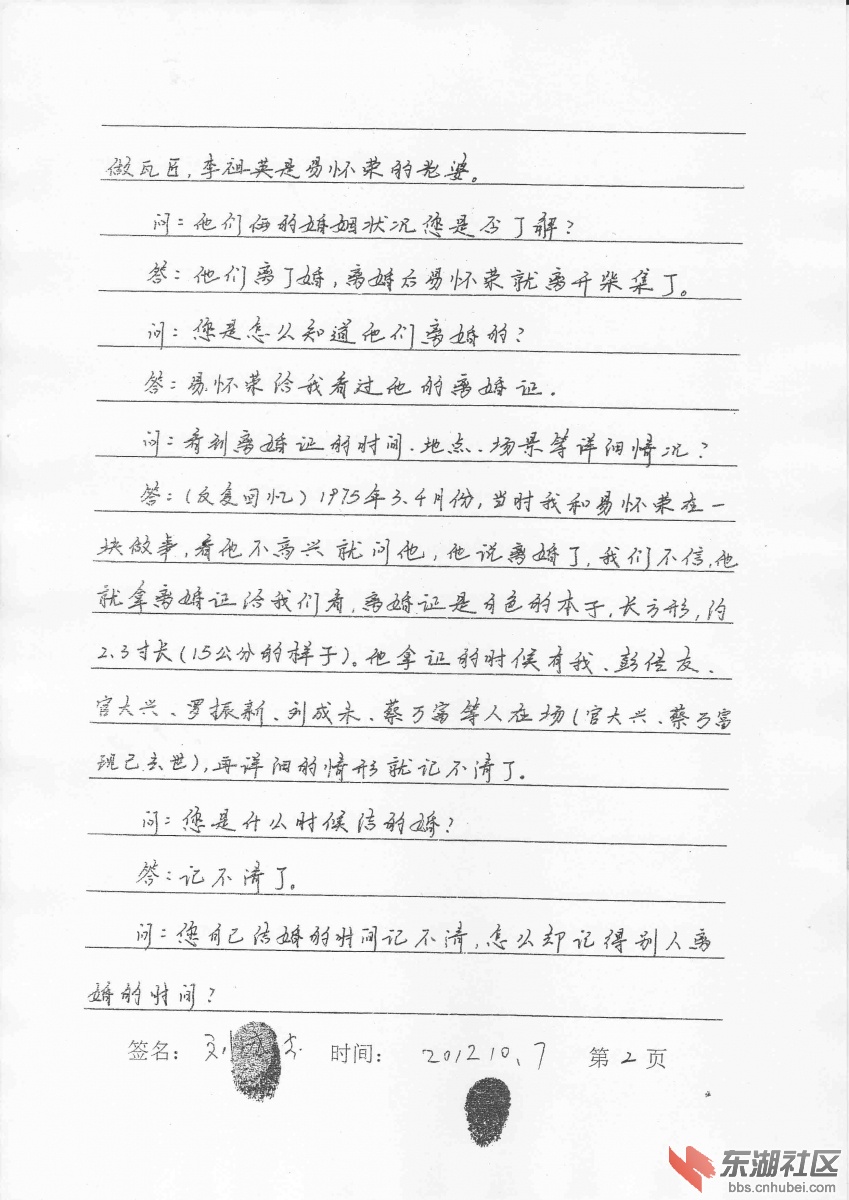 做瓦匠，李祖英是易怀荣的老婆。
问：他们俩的婚姻状况您是否了解？
答：他们离了婚，离婚后易怀荣就离开柴集了。
问：您是怎么知道他们离婚的？
答：易怀荣给我看过他的离婚证．
问：看到离婚证的时间、地点、场景等详细情况？
答：（反复回忆）1975年3、4月份，当时我和易怀荣在一
块做事，看他不高兴就问他，他说离婚了，我们不信，他
就拿离婚证给我们看，离婚证是白色的本子，长方形，约
2.3寸长（15公分的样子）。他拿证的时候有我、彭传友、
官大兴、罗振新、刘成未、蔡万富等人在场（官大兴、蔡万富
现已去世），再详细的情形就记不清了。
问：您是什么时候结的婚？
答：记不清了。
问：您自己结婚的时间记不清，怎么却记得别人离
婚的时间？
签名：刘 时间：2012 10、7 第 2 页
东湖社区
bbs.cnhubei.com